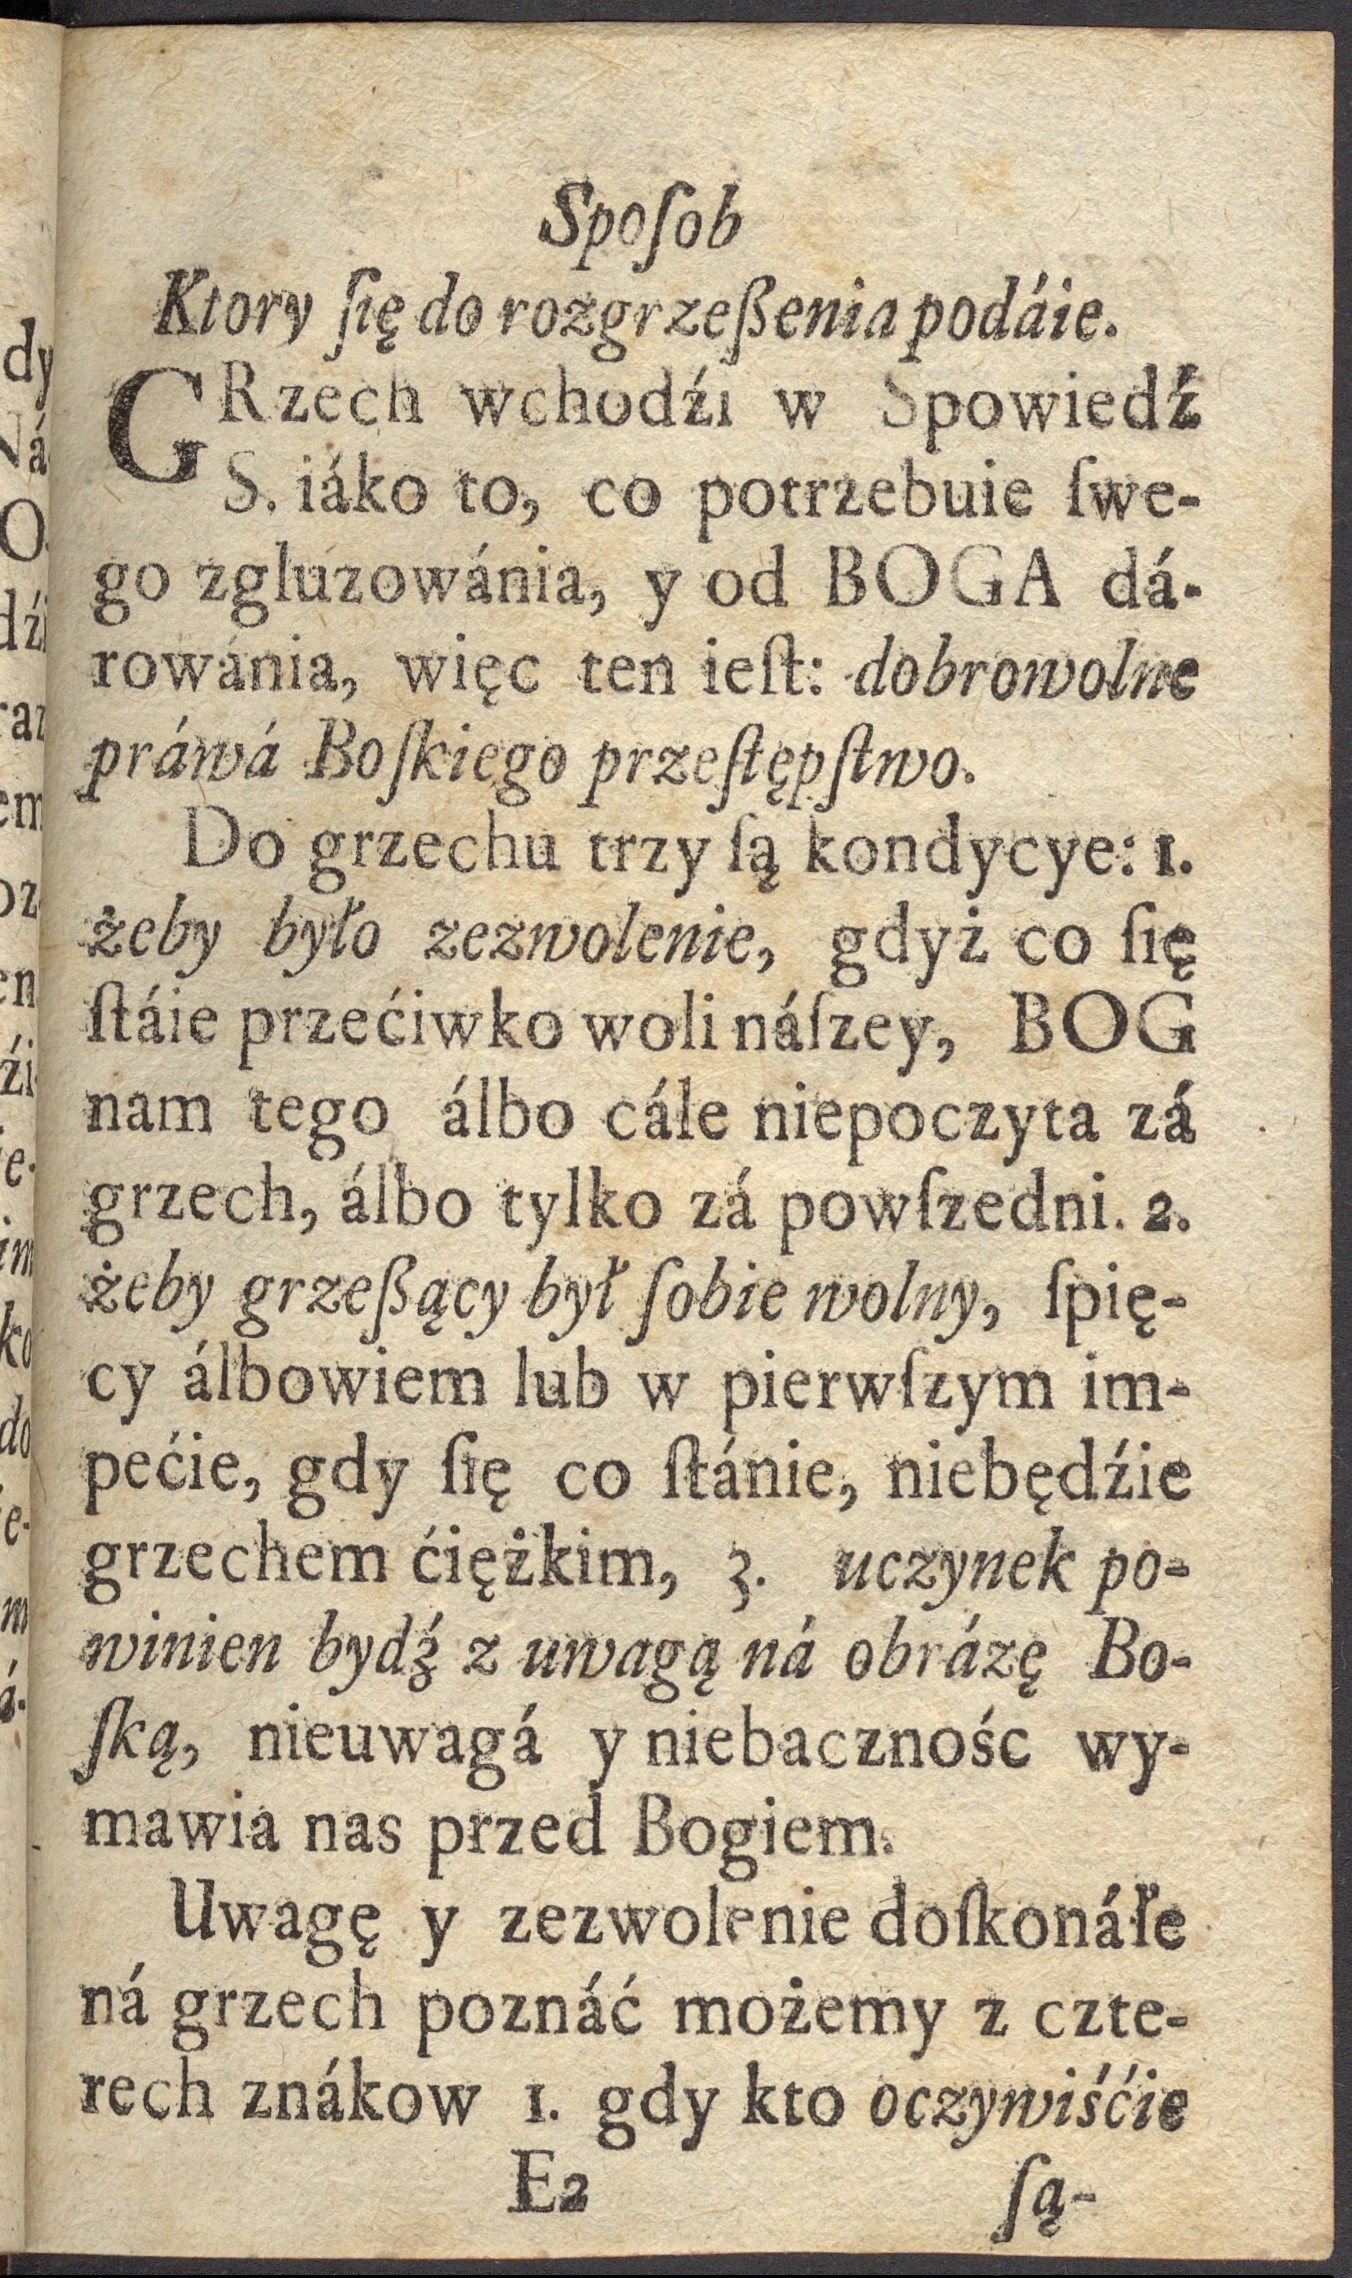 Spoſob
Ktory ſię do rozgrzeßenia podáie.
GRzech wchodźi w Spowiedź
S. iáko to, co potrzebuie ſwe-
go zgluzowánia, y od BOGA dá-
rowánia, więc ten ieſt: dobrowolne
práwá Boſkiego przeſtępſtwo.
Do grzechu trzy ſą kondycye: 1.
żeby było zezwolenie, gdyż co ſię
ſtáie przećiwko woli náſzey, BOG
nam tego álbo cále niepoczyta zá
grzech, álbo tylko zá powſzedni. 2.
żeby grzeßący był ſobie wolny, ſpię-
cy álbowiem lub w pierwſzym im-
pećie, gdy ſię co ſtánie, niebędźie
grzechem ćiężkim, 3. uczynek po-
winien bydź z uwagą ná obrázę Bo-
ſką, nieuwagá y niebacznośc wy-
mawia nas przed Bogiem.
Uwagę y zezwolenie doſkonáłe
ná grzech poznáć możemy z czte-
rech znákow 1. gdy kto oczywiśćie
E2 ſą-